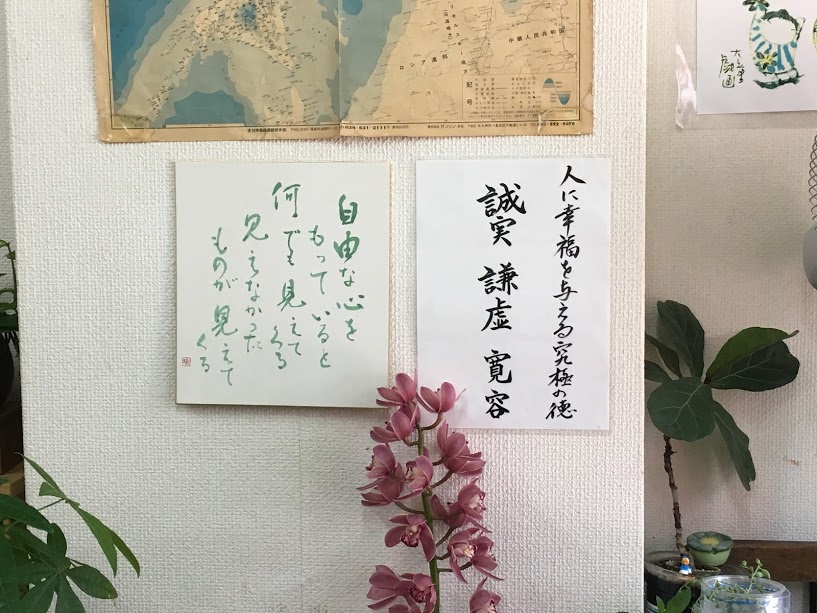 中華人民共和国
ロシア連邦
記号
人に幸福を与える究極の徳
誠実 謙虚 寛容
自由な心を
もっていると
何でも見えて
くる
見えなかった
ものが見えて
くる